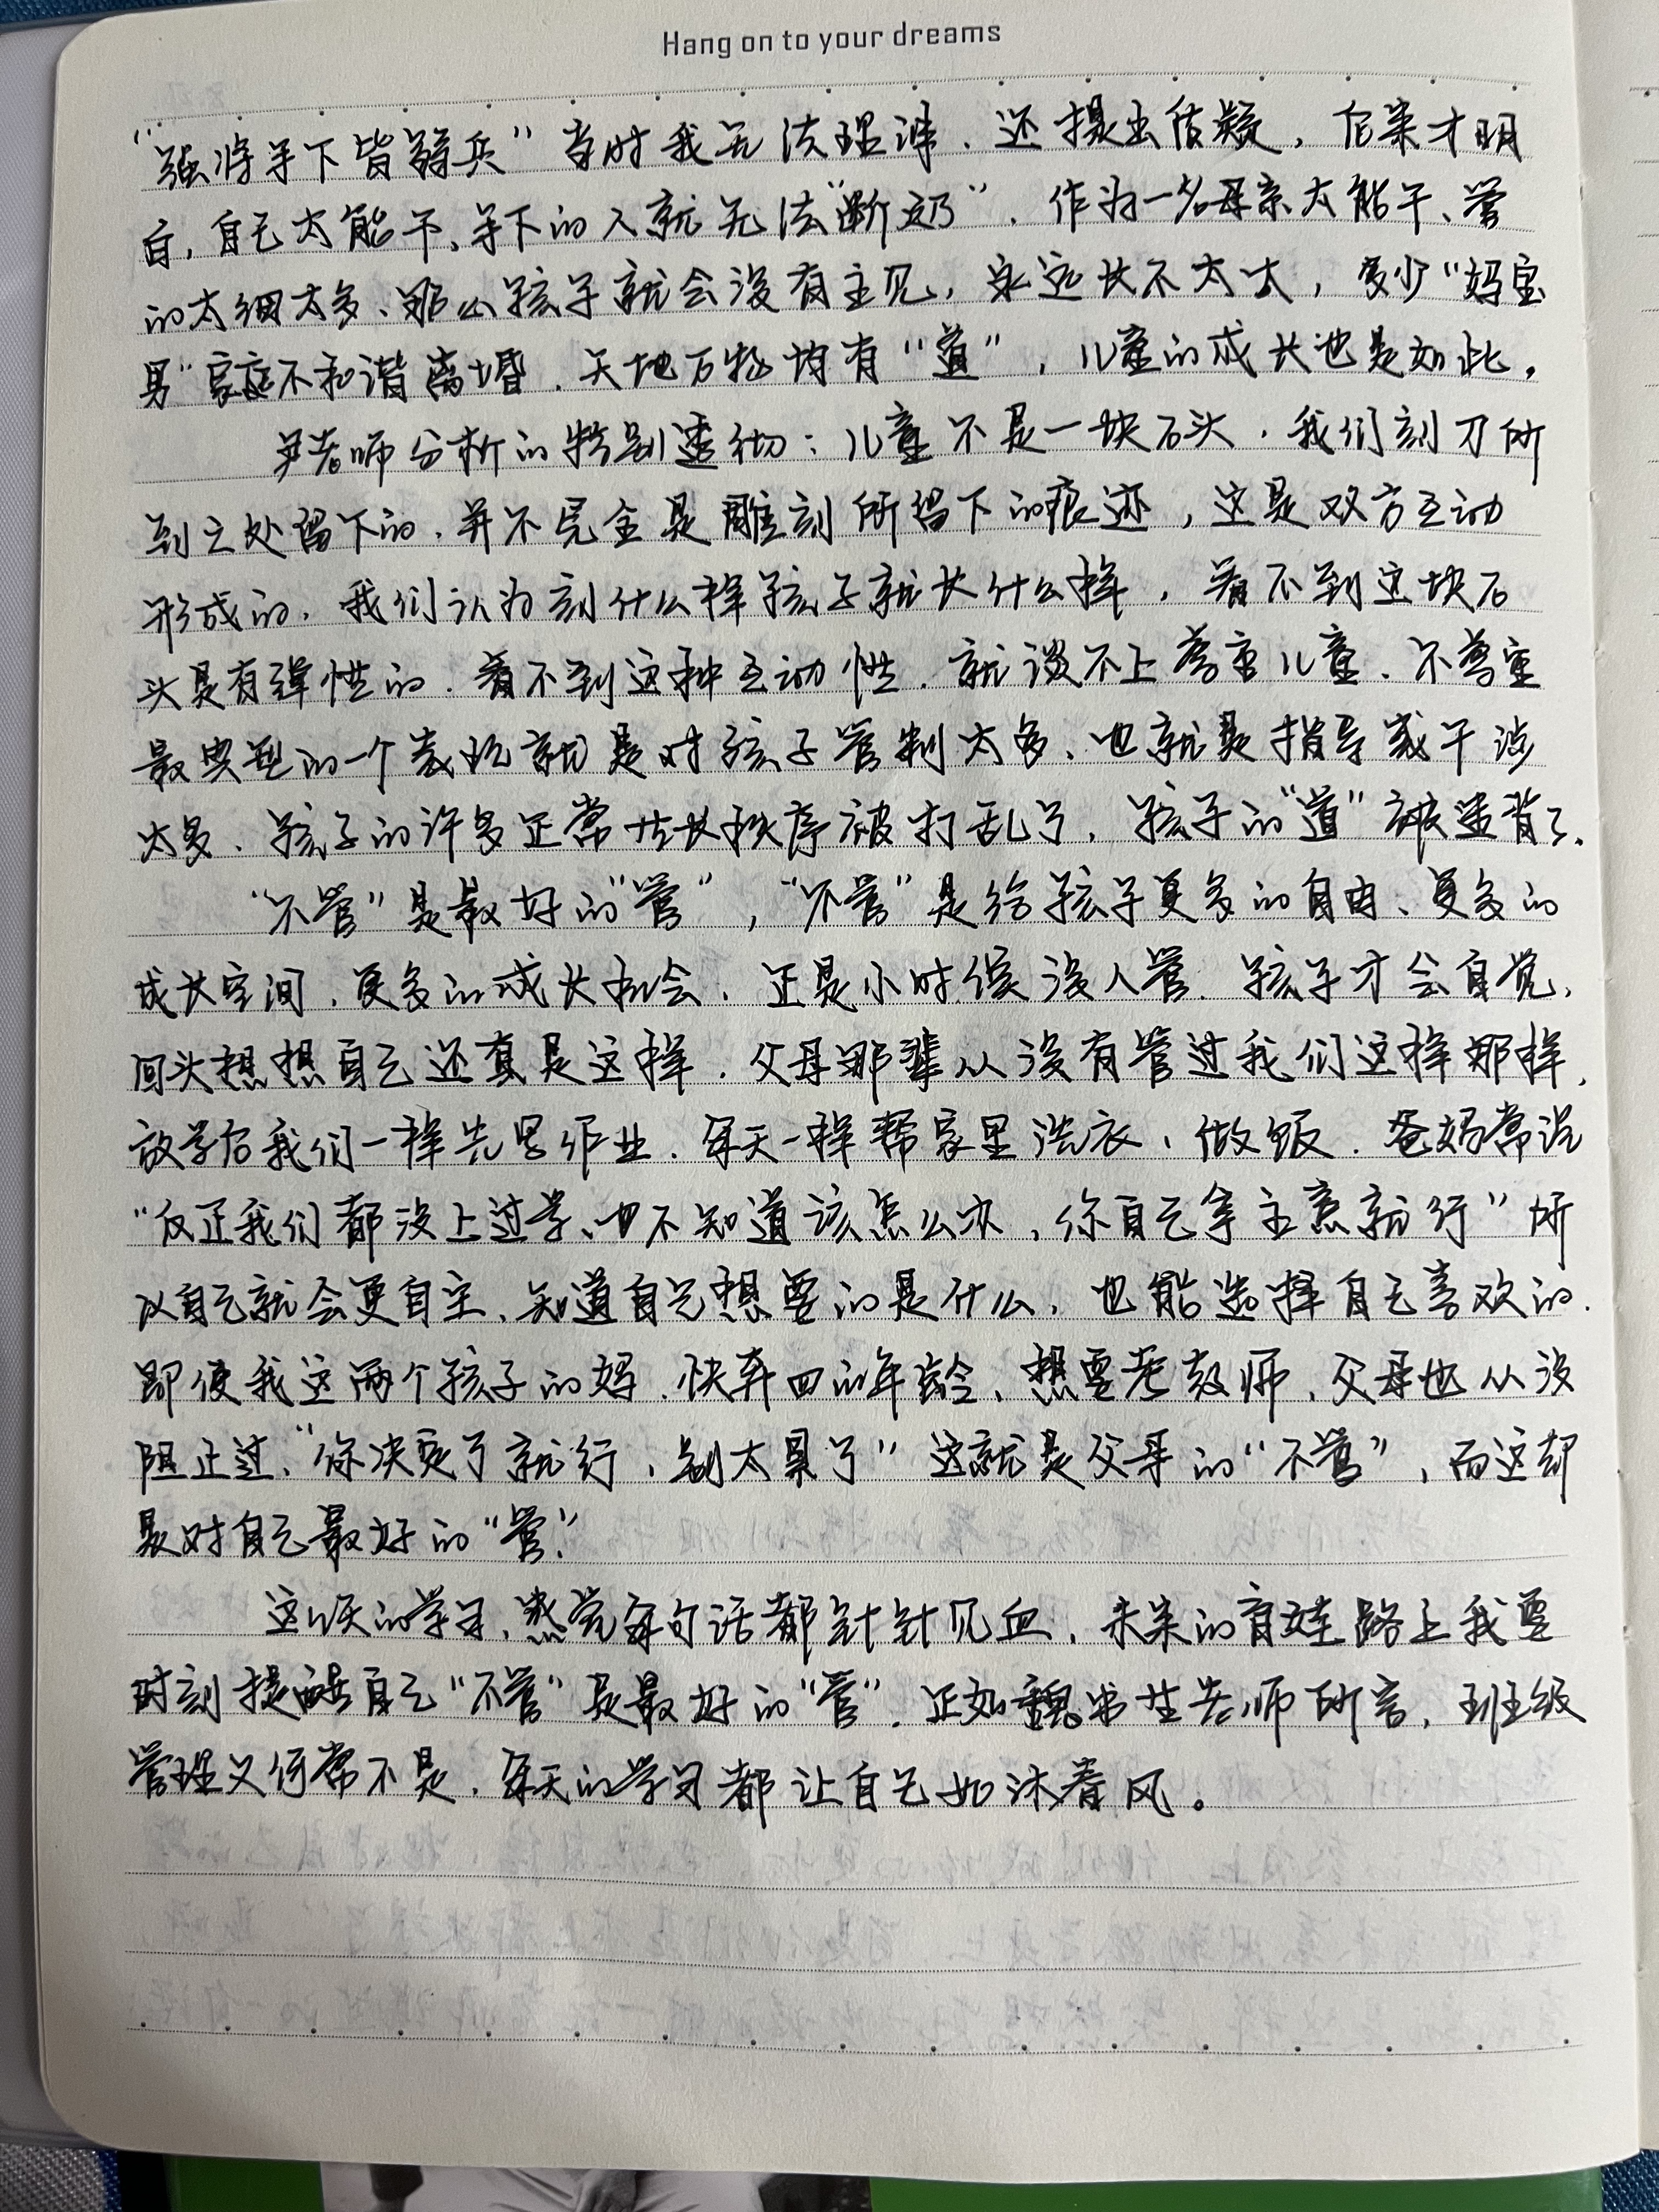 Hang on to your dreams
“强将手下皆弱兵”当时我无法理解，还提出质疑，后来才明
白，自己太能干，手下的人就无法“断奶”，作为一名母亲太能干、管
的太细太多、那么孩子就会没有主见，永远长不大，多少“妈宝
男”家庭不和谐离婚．天地万物均有“道”，儿童的成长也是如此．
尹老师分析的特别透彻：儿童不是一块石头，我们刻刀所
到之处留下的，并不完全是雕刻所留下的痕迹，这是双方互动
形成的，我们认为刻什么样孩子就长什么样，看不到这块石
头是有弹性的．看不到这种互动性．就谈不上尊重儿童．不尊重
最典型的一个表现就是对孩子管制太多、也就是指导或干涉
太多、孩子的许多正常成长秩序被打乱了，孩子的“道”被违背了．
“不管”是最好的“管”，“不管”是给孩子更多的自由、更多的
成长空间，更多的成长机会，正是小时侯没人管．孩子才会自觉，
回头想想自己还真是这样．父母那辈从没有管过我们这样那样，
放学后我们一样先写作业．每天一样帮家里洗衣，做饭．爸妈常说
“反正我们都没上过学、也不知道该怎么办，你自己拿主意就行”所
以自己就会更自主、知道自己想要的是什么，也能选择自己喜欢的．
即便我这两个孩子的妈．快奔四的年龄、想要考教师．父母也从没
阻止过、“你决定了就行，别太累了”这就是父母的“不管”，而这却
是对自己最好的“管”．
这几天的学习，感觉每句话都针针见血，未来的育娃路上我要
时刻提醒自己“不管”是最好的“管”．正如魏书生老师所言，班级
管理又何常不是．每天的学习都让自己如沐春风。